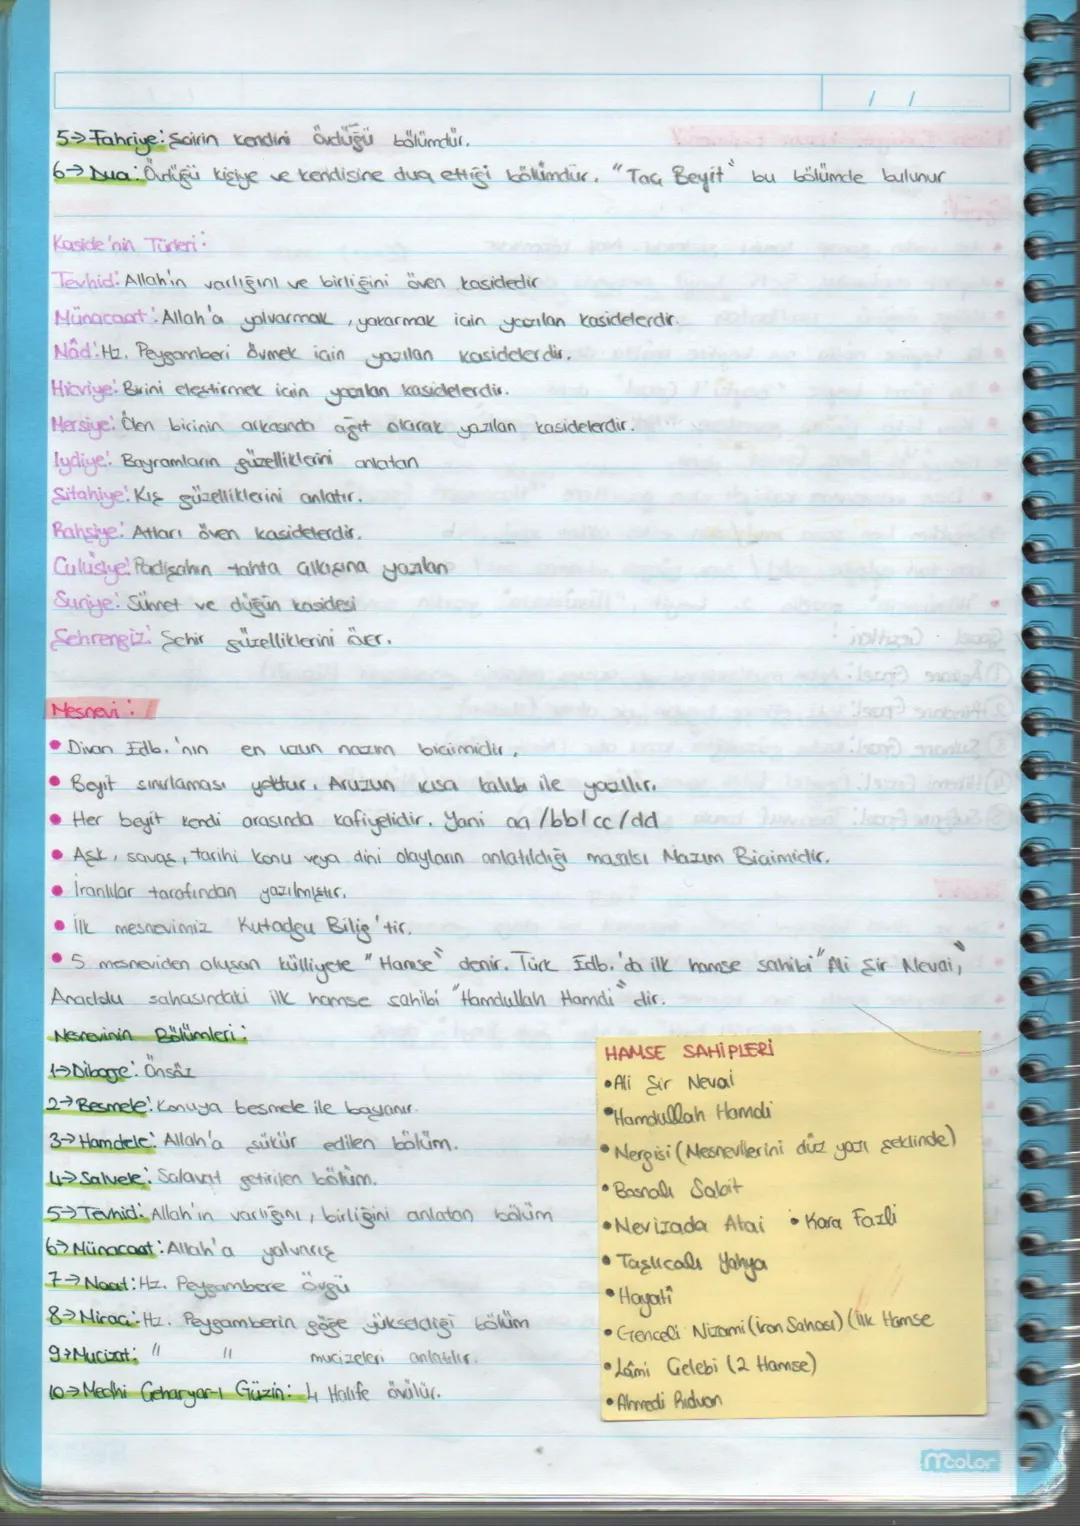 / /
5→ Fahriye: Şairin kendini övdüğü bölümdür.
6→ Dua: Övdüğü kişiye ve kendisine dua ettiği bölümdür. "Taç Beyit" bu bölümde bulunur
Kaside'nin Türleri:
Tevhid: Allah'ın varlığını ve birliğini öven kasidedir
Münacaat: Allah'a yalvarmak, yakarmak için yazılan kasidelerdir.
Nâd: Hz. Peygamberi övmek için yazılan kasidelerdir.
Hicviye: Birini eleştirmek için yazılan kasidelerdir.
Mersiye: Ölen birinin arkasında ağıt olarak yazılan kasidelerdir.
Iydiye: Bayramların güzelliklerini anlatan
Şitahiye: Kış güzelliklerini anlatır.
Rahşiye: Atları öven kasidelerdir.
Culûsiye: Padişahın tahta çıkışına yazılan
Suriye: Sünnet ve düğün kasidesi
Şehrengiz: Şehir güzelliklerini över.
Mesnevi:
• Divan Edb.'nın en uzun nazım biçimidir.
• Beyit sınırlaması yoktur. Aruzun kısa kalıbı ile yazılır.
• Her beyit kendi arasında kafiyelidir. Yani aa/bb/cc/dd
• Aşk, savaş, tarihi konu veya dini olayların anlatıldığı masalsı Nazım Biçimidir.
• İranlılar tarafından yazılmıştır.
• İlk mesnevimiz Kutadgu Bilig'tir.
• 5 mesneviden oluşan külliyete "Hamse" denir. Türk Edb.'da ilk hamse sahibi "Ali Şir Nevai",
Anadolu sahasındaki ilk hamse sahibi "Hamdullah Hamdi" dir.
Mesnevinin Bölümleri:
1→Dibage: Önsöz
2→Besmele: Konuya besmele ile başlanır.
3→Hamdele: Allah'a şükür edilen bölüm.
4→Salvele: Salavat getirilen bölüm.
5→Tevhid: Allah'ın varlığını, birliğini anlatan bölüm
6→Münacaat: Allah'a yalvarış
7→Naat: Hz. Peygambere Övgü
8→Miraç: Hz. Peygamberin göğe yükseldiği bölüm
9→Mucizat: " " mucizeleri anlatılır.
10→Medhi Çeharyar-ı Güzin: 4 Halife övülür.
HAMSE SAHİPLERİ
• Ali Şir Nevai
• Hamdullah Hamdi
• Nergisi (Mesnevilerini düz yazı şeklinde)
• Bosnalı Sabit
• Nevizada Atai • Kara Fazlı
• Taşlıcalı Yahya
• Hayati
• Genceli Nizami (İran Sahası) (İlk Hamse
• Lâmi Çelebi (2 Hamse)
• Ahmedi Rıdvan
mcolor